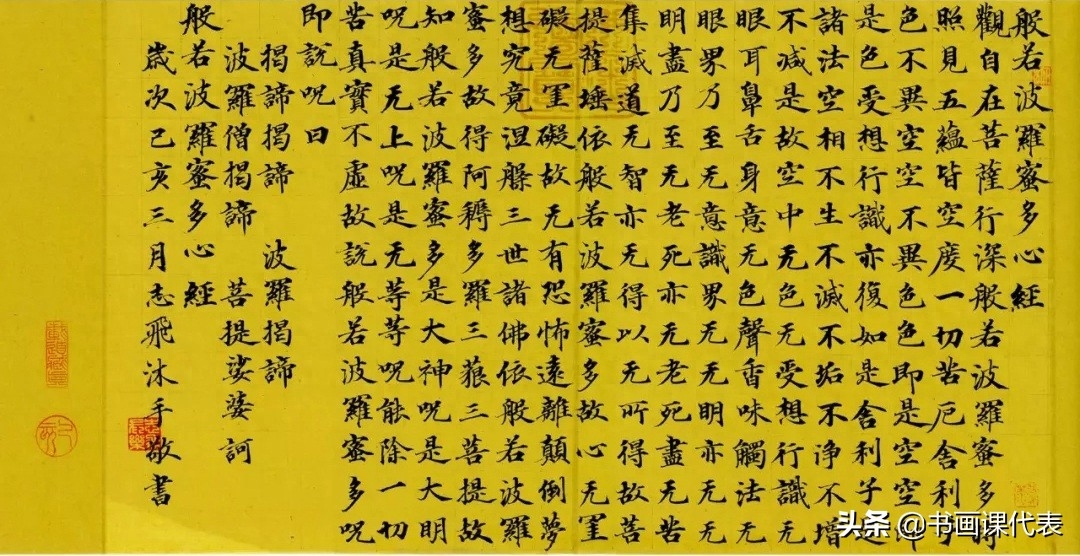 般若波羅蜜多心經
觀自在菩薩行深般若波羅蜜多時
照見五蘊皆空度一切苦厄舍利子
色不異空空不異色色即是空空即
是色受想行識亦復如是舍利子是
諸法空相不生不滅不垢不净不增
不減是故空中无色无受想行識无
眼耳鼻舌身意无色聲香味觸法无
眼界乃至无意識界无无明亦无无
明盡乃至无老死亦无老死盡无苦
集滅道无智亦无得以无所得故菩
提薩埵依般若波羅蜜多故心无罣
礙无罣礙故无有恐怖遠離顛倒夢
想究竟涅槃三世諸佛依般若波羅
蜜多故得阿耨多羅三藐三菩提故
知般若波羅蜜多是大神呪是大明
呪是无上呪是无等等呪能除一切
苦真實不虛故說般若波羅蜜多呪
即說呪曰
揭諦揭諦 波羅揭諦
波羅僧揭諦 菩提娑婆訶
般若波羅蜜多心經
歲次己亥三月志飛沐手敬書
头条 @书画课代表